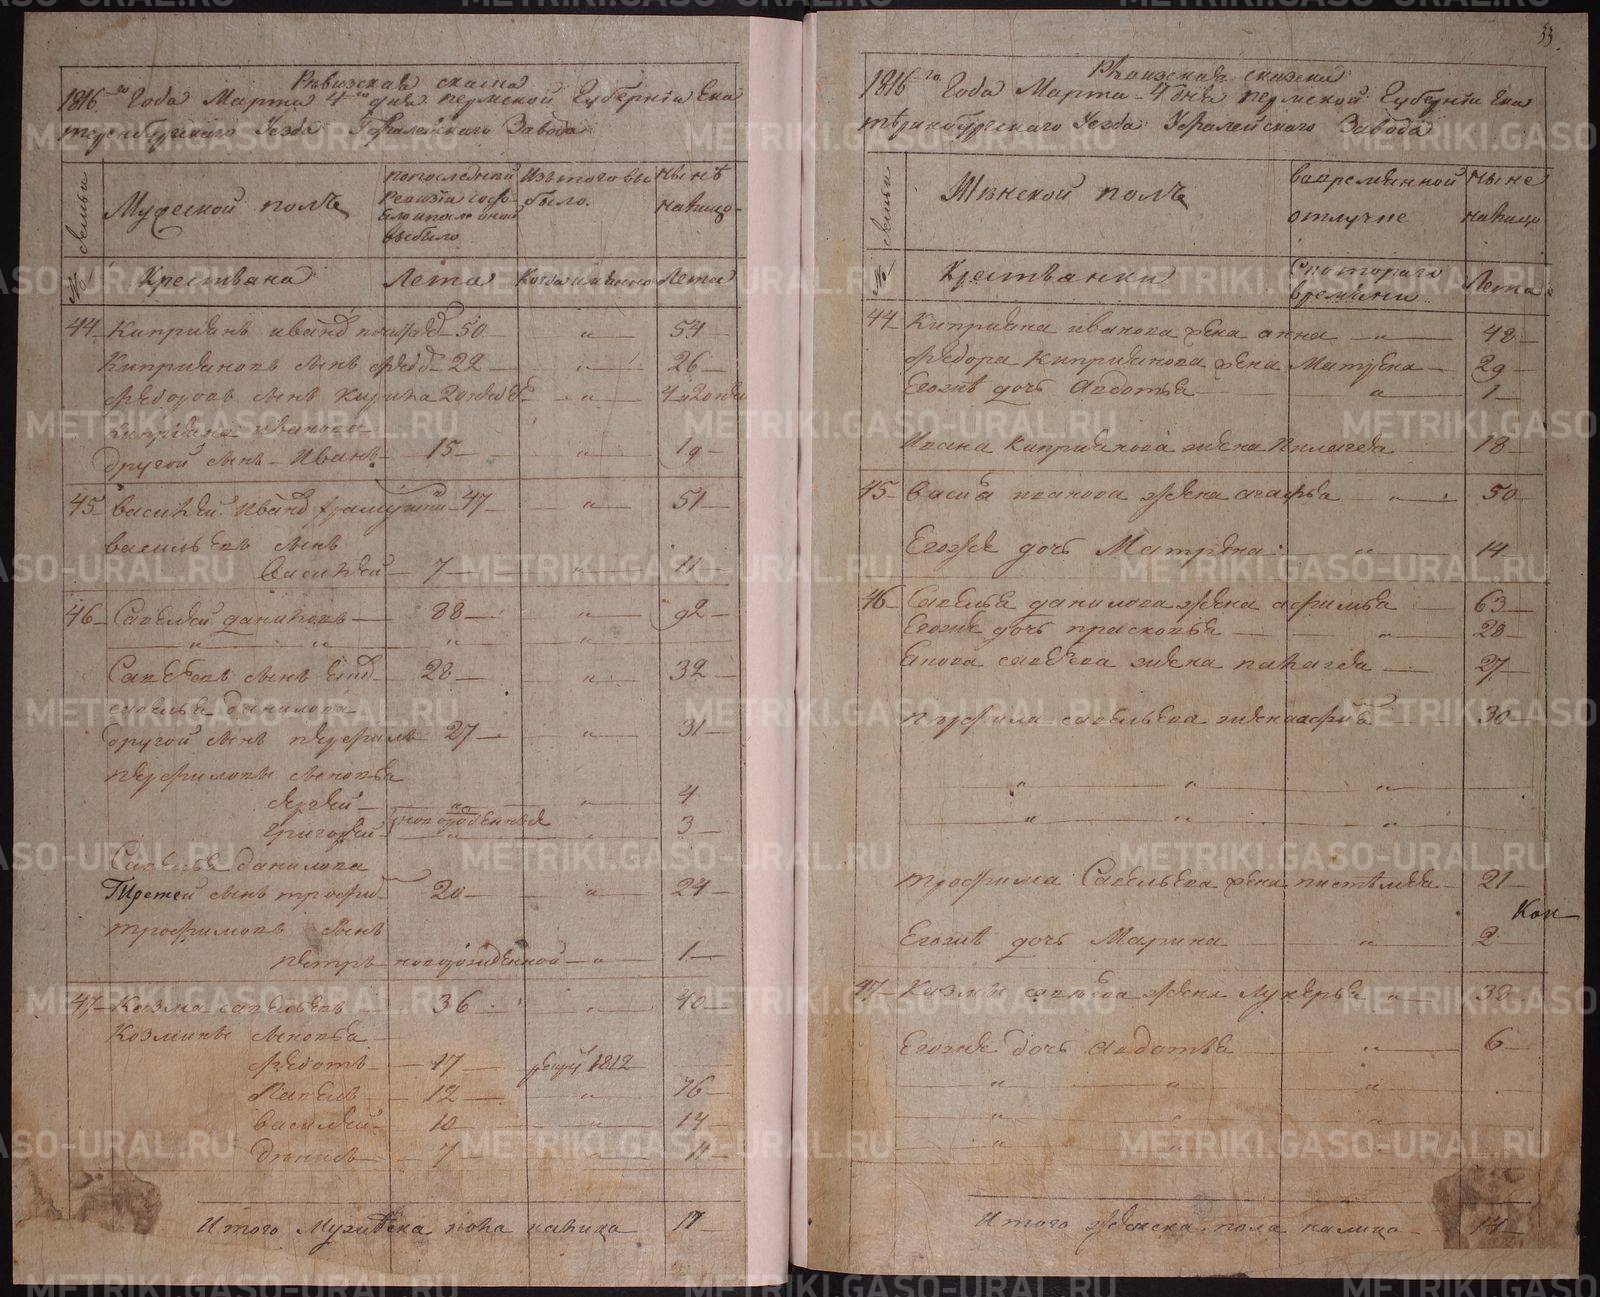 33
Ревизская скаска
1816-го Года Марта 4-го дня пермской Губернiи Ека
теренбургского Уезда Уфалейского Завода
семьи
Мужеской полъ
попоследней
Ревизiи состо-
яло ипосле оной
выбыло
Изътого вы
было.
Ныне
налицо-
№
Крестьяна
Лета
Когда имянно
Лета
44 Киприянъ иванов 50 — „ — 54
Киприяновъ сынъ федор 22 — „ — 26
федоровъ сынъ Кирила 20 недель — „ — 4 и 20 неде
Киприяна иванова
другой сынъ Иванъ — 15 — „ — 19
45 василей Иванов 47 — „ — 51
васильевъ сынъ
Василей — 7 — „ — 11
46 Савелей даниловъ — 88 — „ — 92
„ „ „ „
Савелевъ сынъ 28 — „ — 32
савелья данилова
другой сынъ перфилъ 27 — „ — 31
перфиловы сыновья
сергей — „ — 4
григорей — новорожденныя — „ — 3
Савелья данилова
Третей сынъ трофим 20 — „ — 24
трофимовъ сынъ
петръ новорожденной — „ — 1
47 Козма савельевъ 36 — „ — 40
Козмины сыновья
федотъ — 17 — 1812
Павелъ — 12 — „ — 16
василей — 10 — „ — 14
денисъ — 7 — „ — 11
Итого Мужеска пола налицо 17
Ревизская скаска
1816-го Года Марта 4 дня пермской Губернiи Ека
теринбургского Уезда Уфалейского Завода
семьи
Женской полъ
вовремянной
отлучке
Ныне
налицо
№
Крестьянки
Скотораго
времяни
Лета
44 Киприяна иванова жена анна — „ — 48
федора Киприянова жена Матрена — 29
Егожъ дочь Авдотья — „ — 1
Ивана Киприянова жена Пелагея — 18
45 Василья иванова жена агафья — „ — 50
Егоже дочь Матрена — „ — 14
46 Савелья данилова жена афимья — 63
Егоже дочь прасковья — „ — 28
савельева жена палагея — 27
перфила савельева жена — 30
„ „ „
„ „ „
трофима Савельева жена — 21
Егожъ дочь Марина — „ — 2
47 Козмы савельева жена лукерья — „ — 38
Егоже дочь авдотья — „ — 6
„ „ „
„ „
„ „
Итого женска пола налицо 14
METRIKI.GASO-URAL.RU